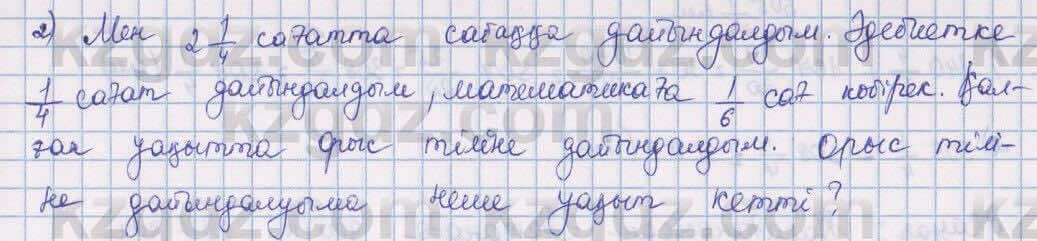 2) Мен 2 1/4 сағатта сабаққа дайындалдым. Әдебиетке
1/4 сағат дайындалдым, математикаға 1/6 сағ көбірек. Қал-
ған уақытта орыс тіліне дайындалдым. Орыс тілі-
не дайындалуыма неше уақыт кетті?
kzgdz.com